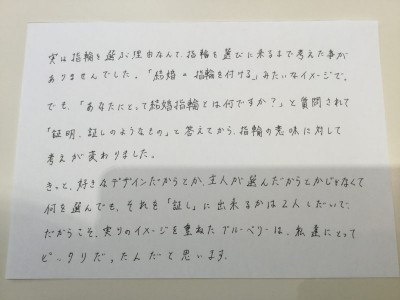 実は指輪を選ぶ理由なんて、指輪を選びに来るまで考えた事が
ありませんでした。「結婚＝指輪を付ける」みたいなイメージで。
でも、「あなたにとって結婚指輪とは何ですか?」と質問されて
「証明、証しのようなもの」と答えてから、指輪の意味に対して
考えが変わりました。
きっと、好きなデザインだからとか、主人が選んだからとかじゃなくて
何を選んでも、それを「証し」に出来るかは2人しだいで、
だからこそ、実りのイメージを重ねたブルーベリーは、私達にとって
ピッタリだったんだて思います。